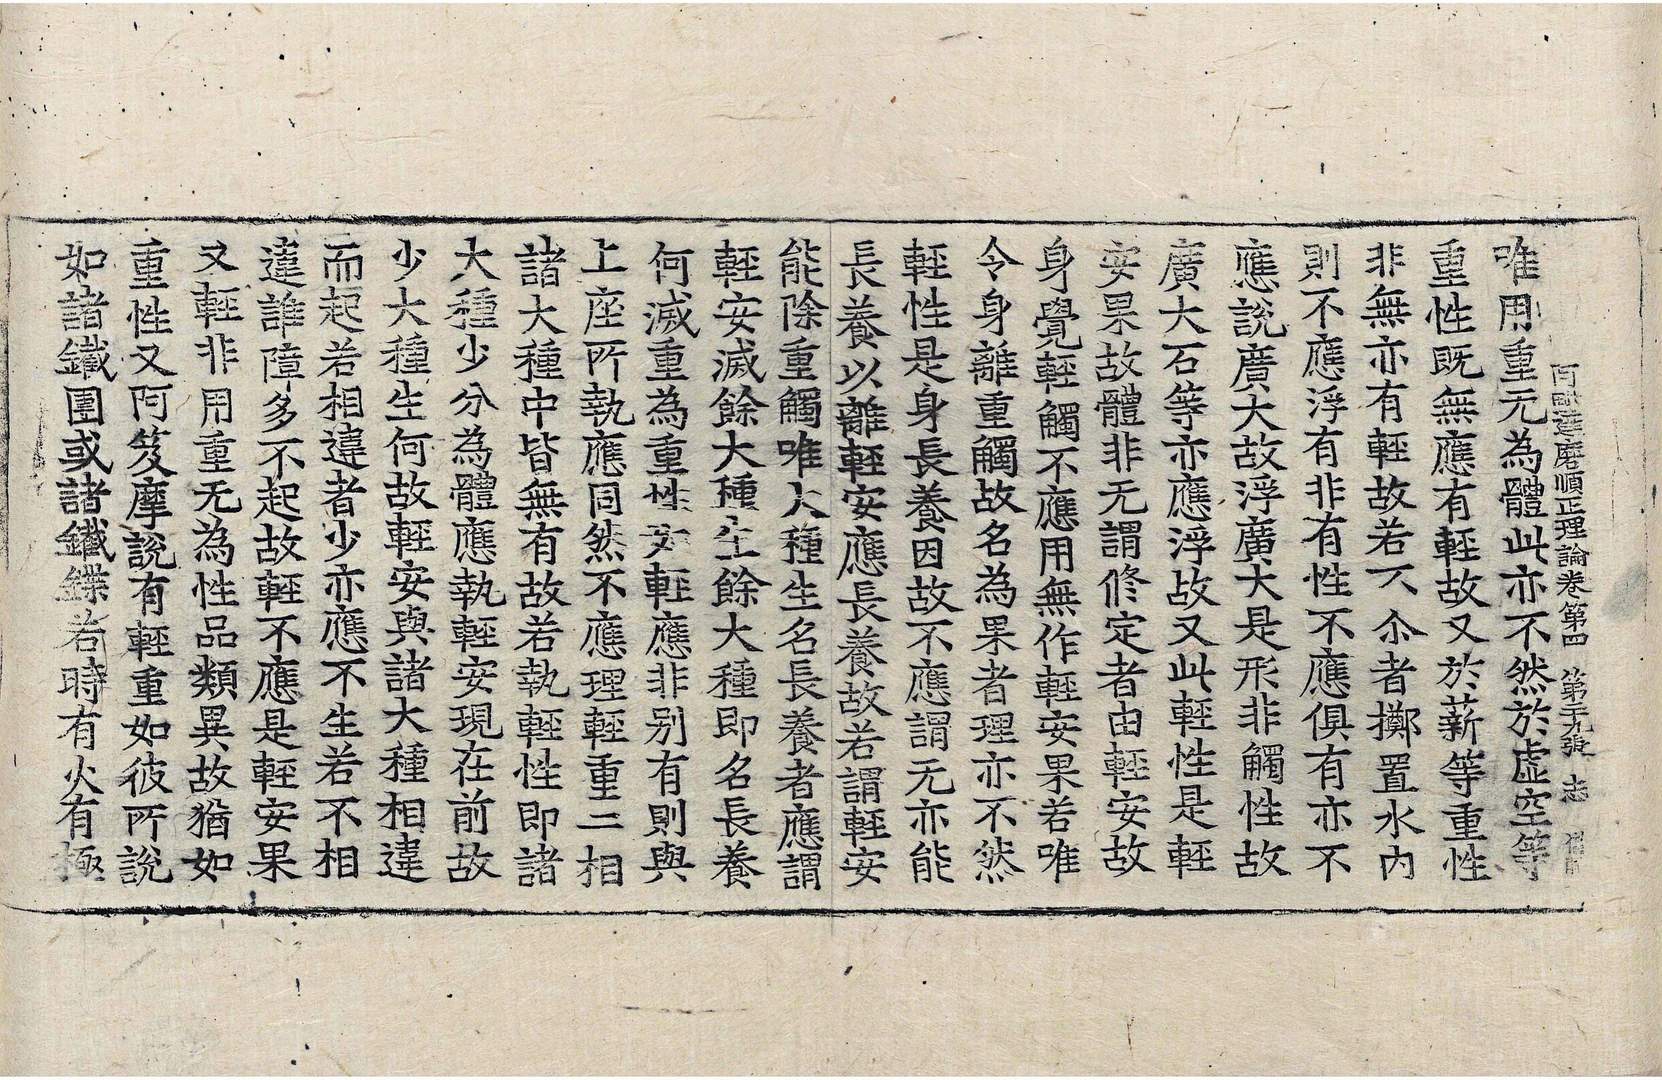 阿毗達磨順正理論卷第四 第二十九張 志
唯用重无為體此亦不然於虛空等
重性既無應有輕故又於薪等重性
非無亦有輕故若不尒者擲置水內
則不應浮有非有性不應俱有亦不
應說廣大故浮廣大是形非觸性故
廣大石等亦應浮故又此輕性是輕
安果故體非无謂修定者由輕安故
身覺輕觸不應用無作輕安果若唯
令身離重觸故名為果者理亦不然
輕性是身長養因故不應謂无亦能
長養以離輕安應長養故若謂輕安
能除重觸唯大種生名長養者應謂
輕安滅餘大種生餘大種即名長養
何滅重為重性安輕應非别有則與
上座所執應同然不應理輕重二相
諸大種中皆無有故若執輕性即諸
大種少分為體應執輕安現在前故
少大種生何故輕安與諸大種相違
而起若相違者少亦應不生若不相
違誰障多不起故輕不應是輕安果
又輕非用重无為性品類異故猶如
重性又阿笈摩說有輕重如彼所說
如諸鐵團或諸鐵鍱若時有火有極